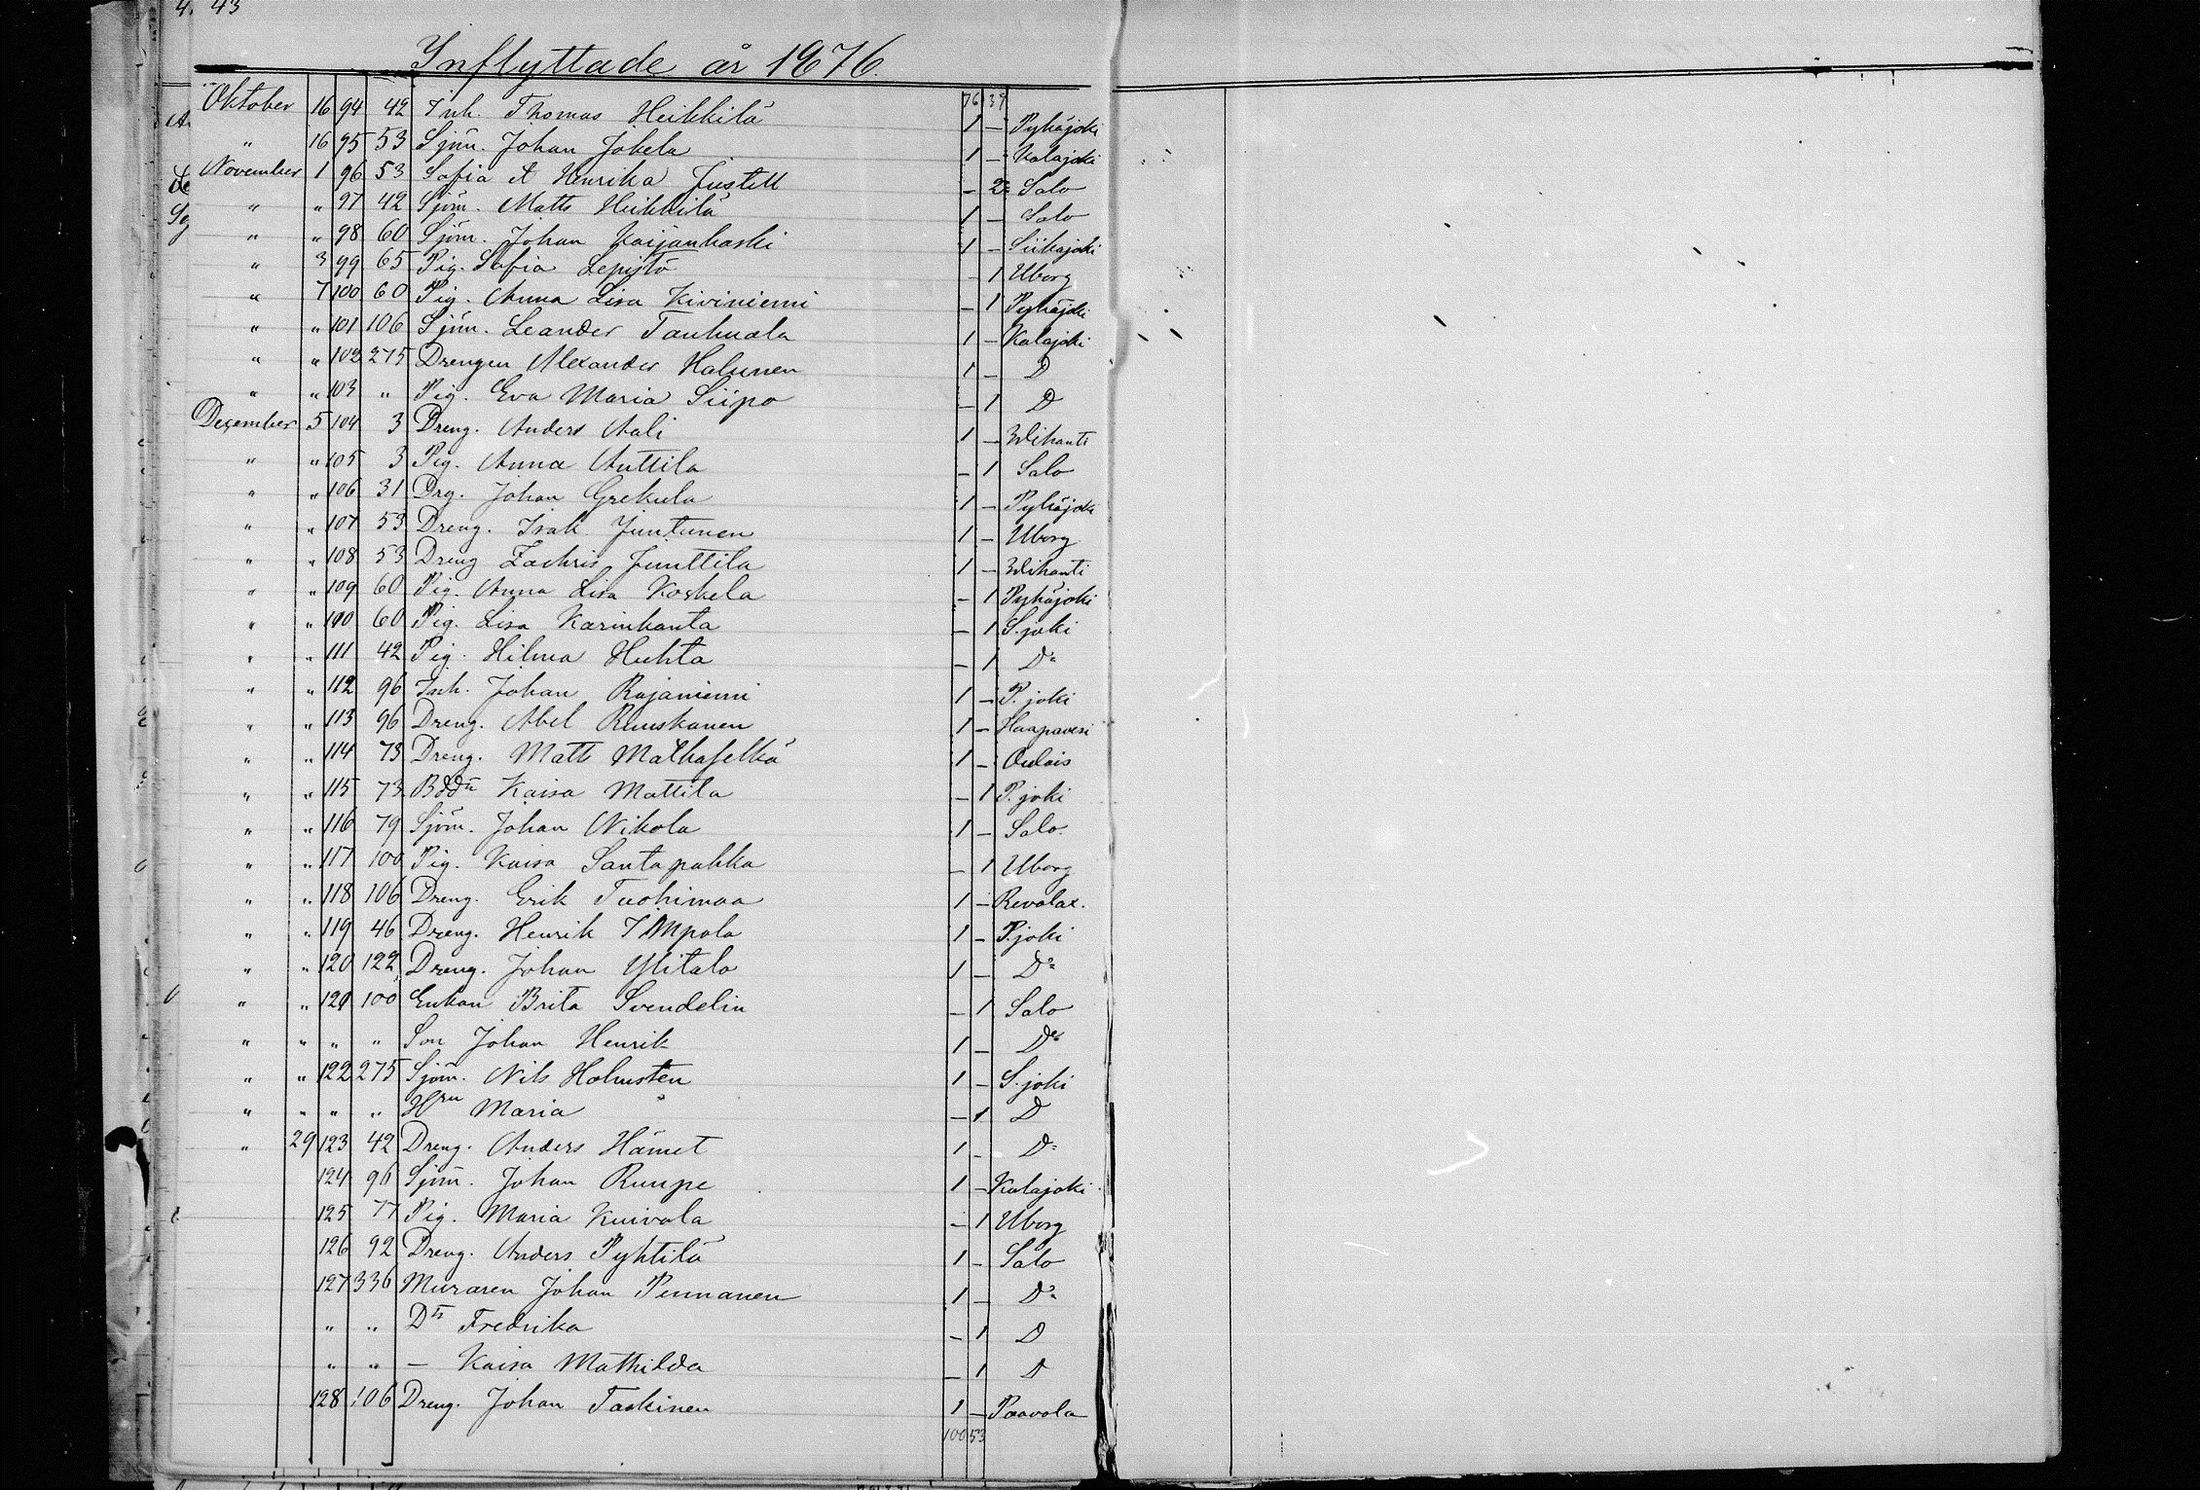 4. 43
Inflyttade år 1876.
76 39
Oktober 16 94 42 Inh. Thomas Heikkilä 1 – Pyhäjoki
" 16 95 53 Sjöm. Johan Jokela 1 – Kalajoki
November 1 96 53 Sofia et Henrika Justell – 2 Salo
" " 97 42 Sjöm. Matts Heikkilä 1 – Salo
" " 98 60 Sjöm. Johan Kaijankoski 1 – Siikajoki
" 3 99 65 Pig. Sofia Lepistö – 1 Uborg
" 7 100 60 Pig. Anna Lisa Kiviniemi – 1 Pyhäjoki
" " 101 106 Sjöm. Leander Tauhuala 1 – Kalajoki
" " 102 275 Drengen Alexander Halunen 1 – D
" " 103 " Pig. Eva Maria Siipo – 1 D
December 5 104 3 Dreng. Anders Aali 1 – Wihanti
" " 105 3 Pig. Anna Anttila – 1 Salo
" " 106 31 Drg. Johan Grekula 1 – Pyhäjoki
" " 107 53 Dreng. Isak Juntunen 1 – Uborg
" " 108 53 Dreng Zachris Junttila 1 – Wihanti
" " 109 60 Pig. Anna Lisa Koskela – 1 Pyhäjoki
" " 110 60 Pig. Lisa Karinkanta – 1 S.joki
" " 111 42 Pig. Hilma Huhta – 1 D:
" " 112 96 Inh. Johan Rajaniemi 1 – P. joki
" " 113 96 Dreng. Abel Ruuskanen 1 – Haapavesi
" " 114 73 Dreng. Matts Matkaselkä 1 – Oulais
" " 115 73 Kaisa Mattila – 1 P. joki
" " 116 79 Sjöm. Johan Nikola 1 – Salo.
" " 117 100 Pig. Kaisa Santapakka – 1 Uborg
" " 118 106 Dreng. Erik Tuohimaa 1 – Revolax.
" " 119 46 Dreng. Henrik Impola 1 – P.joki
" " 120 122 Dreng. Johan Ylitalo 1 – D:
" " 121 100 Enkan Brita Svendelin – 1 Salo
" " " " Son Johan Henrik 1 – D:
" " 122 275 Sjöm. Nils Holmsten 1 – S.joki
" " " " Hru Maria " – 1 D
" 29 123 42 Dreng. Anders Hämet 1 – D:
124 96 Sjöm. Johan Rumpe 1 – Kalajoki
125 77 Pig. Maria Kuivala – 1 Uborg
126 92 Dreng. Anders Pyhtilä 1 – Salo
127 336 Muraren Johan Pennanen 1 – D:
" " Dtr Fredrika – 1 D
" " – Kaisa Mathilda – 1 D
128 106 Dreng. Johan Taskinen 1 – Paavola
100 53